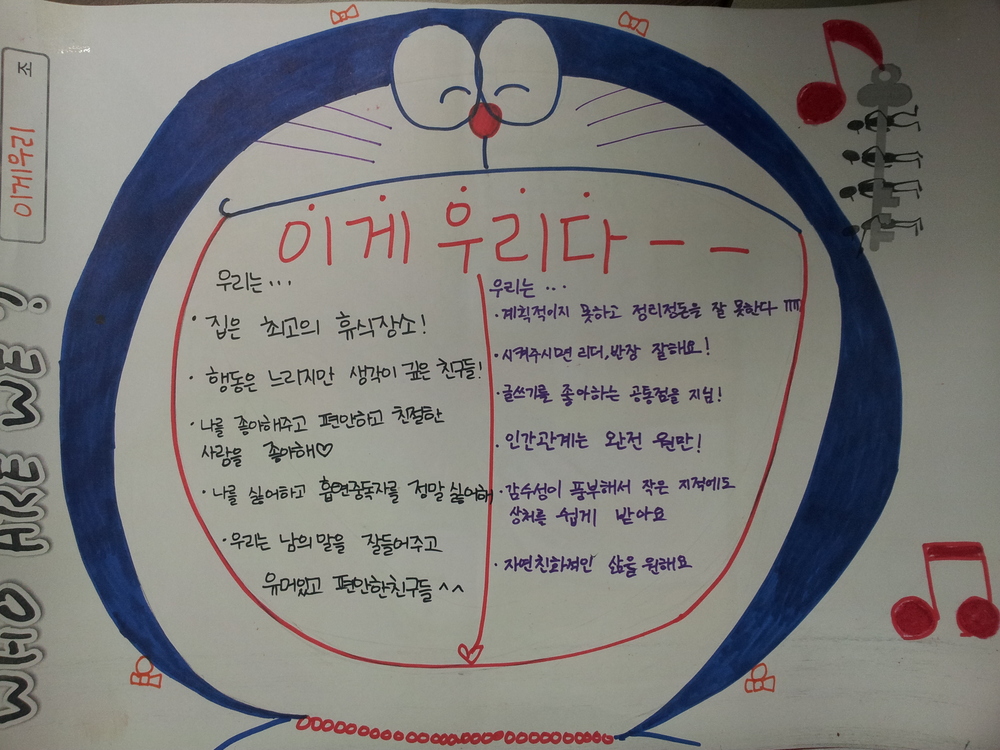 WHO ARE WE?
이게우리 조
이게 우리다--
우리는...
· 집은 최고의 휴식장소!
· 행동은 느리지만 생각이 깊은 친구들!
· 나를 좋아해주고 편안하고 친절한
사람을 좋아해♡
· 나를 싫어하고 흡연중독자를 정말 싫어해
· 우리는 남의 말을 잘들어주고
유머있고 편안한친구들^^
우리는 ...
· 계획적이지 못하고 정리정돈을 잘 못한다 ㅠㅠ
· 시켜주시면 리더, 반장 잘해요!
· 글쓰기를 좋아하는 공통점을 지님!
· 인간관계는 완전 원만!
· 감수성이 풍부해서 작은 지적에도
상처를 쉽게 받아요
· 자연친화적인 삶을 원해요